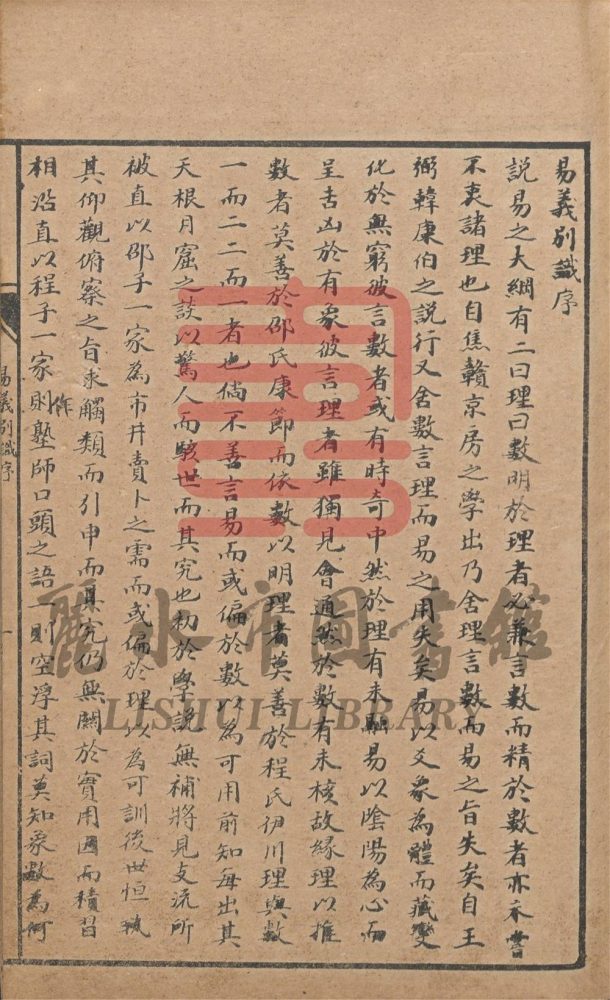 易義別識序
說易之大綱有二曰理曰數明於理者必兼言數而精於數者亦未嘗
不衷諸理也自焦贛京房之學出乃舍理言數而易之旨失矣自王
弼韓康伯之說行又舍數言理而易之用失矣易以爻象為體而藏變
化於無窮彼言數者或有時奇中然於理有未融易以陰陽為心而
呈吉凶於有象彼言理者雖獨見會通然於數有未核故緣理以推
數者莫善於邵氏康節而依數以明理者莫善於程氏伊川理與數
一而二二而一者也倘不善言易而或偏於數以為可用前知每出其
天根月窟之談以驚人而駭世而其究也初於學說無補將見支流所
被直以邵子一家為市井賣卜之需而或偏於理以為可訓後世恒執
其仰觀俯察之旨求觸類而引申而其究仍無關於實用因而積習
相沿直以程子一家作則塾師口頭之語一則空浮其詞莫知象數為何
易義別識序
一
麗水市圖書館
LISHUI LIBRARY